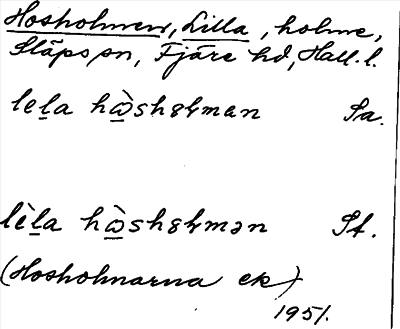 Hosholmen, Lilla, holme,
Släps sn, Fjäre hd, Hall. l.
lela hὼshꝏɬmen Sa.
lèla hὼshꝏɬmən St.
(Hosholmarna ek)
1951.